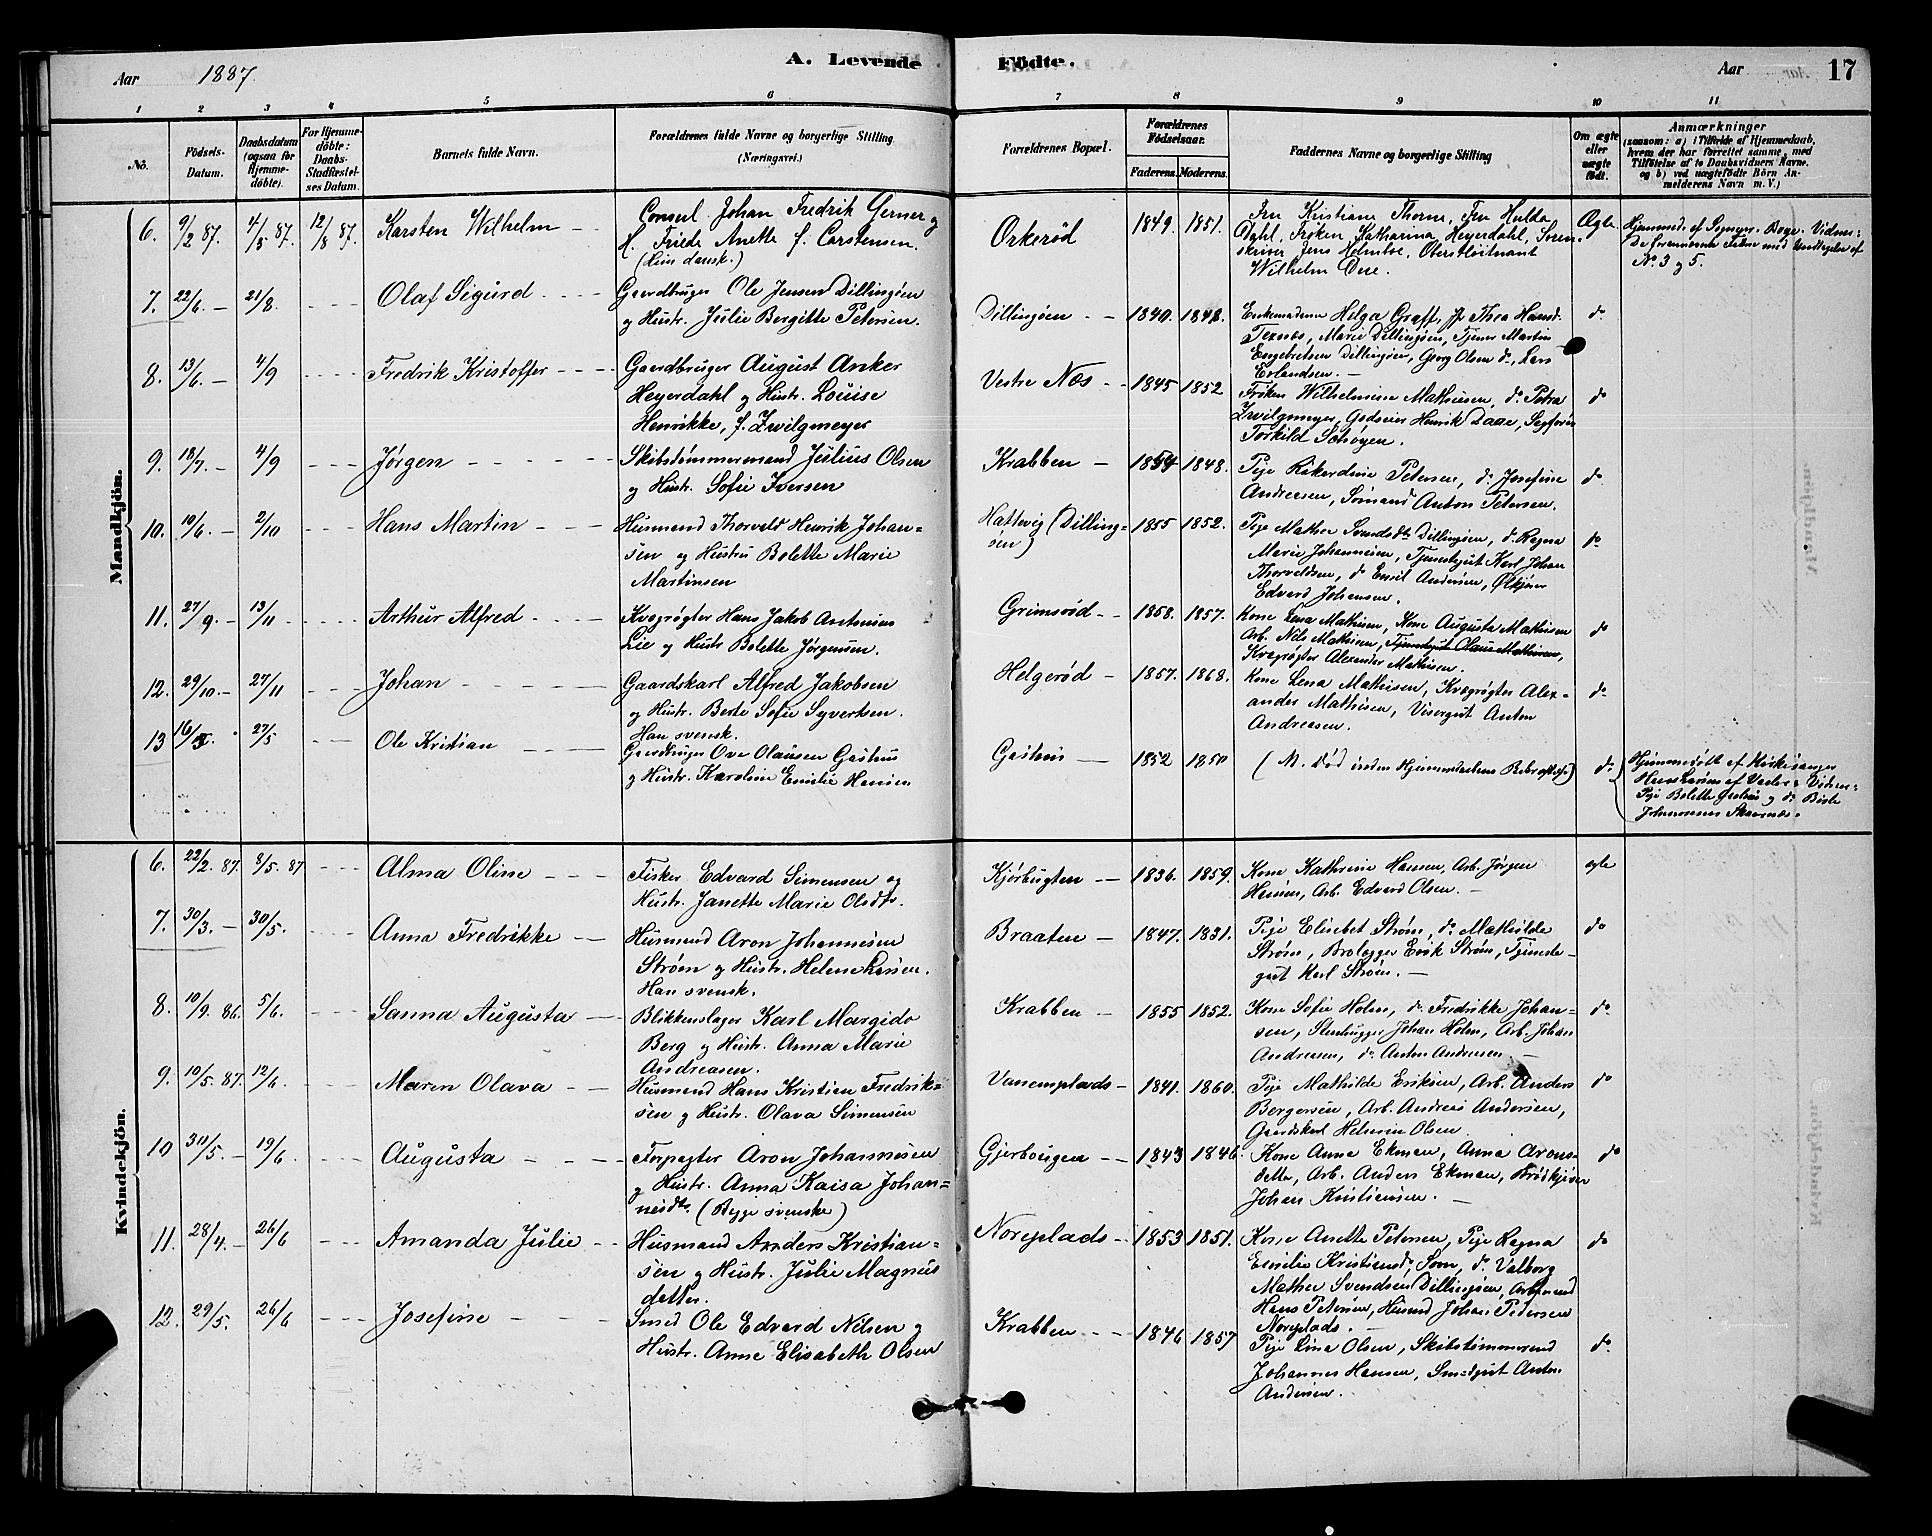 Aar 1887. A. Levende Födte. Aar 17
1 2 3 4 5 6 7 8 9 10 11
No. Födsels-Datum. Daabsdatum (ogsaa for Hjemme-döbte). For Hjemme-döbte: Daabs-Stadfæstel-ses Datum. Barnets fulde Navn. Forældrenes fulde Navne og borgerlige Stilling (Næringsvei.) Forældrenes Bopæl. Forældrenes Födselsaar. Faderens. Moderens. Faddernes Navne og borgerlige Stilling Om ægte eller uægte födt. Anmærkninger (saasom: a) i Tilfælde af Hjemmedaab, hvem der har forrettet samme, med Tilföielse af to Daabsvidners Navne, og b) ved uægtefödte Börn An-melderens Navn m. V.)
Mandkjön.
6. 9/2 87. 4/5 87. 12/8 87. Karsten Wilhelm Consul Johan Fredrik Gerner og Orkerød 1849. 1851. Fru Kristiane Thorne, Fru Hulda Ægte
H. Friede Anette f. Carstensen. Dahl, Frøken Katharina Heyerdahl, Soren-
(Hun dansk.) skriver Jens Holmboe, Oberstløitnant
Wilhelm Due. No. 3 og 5.
7. 22/6 21/8. Olaf Sigurd Gaardbruger Ole Jensen Dillingøen Dillingøen 1840. 1848. Enkemadame Helga Graff, Thea Hansd. do
og Hustr. Julie Bergitte Petersen. Texnæs, Marie Dillingøen, Tjener Martin
Engebretsen Dillingøen, Georg Olsen do, Lars
Erlandsen.
8. 13/6. 4/9 Fredrik Kristoffer Gaardbruger August Anker Vestre Næs 1845 1852 Frøken Wilhelmine Mathiesen, do Petra do
Heyerdahl og Hustr. Louise Zwilgmeyer, Godseier Henrik
Henrikke, f. Zwilgmeyer Torkild
9. 18/7. 4/9 Jørgen Skibstømmermand Julius Olsen Krabben 1854 1848. Pige Rikardine Petersen, do Josefine do
og Hustr. Sofie Iversen Andreasen, Sømand Anton Petersen.
10. 10/6. 2/10 Hans Martin Husmand Thorvald Henrik Johan= Hattevig (Dilling= 1855 1852. Pige Mathea Svendsdtr Dillingøen, do Ragna do
sen og Hustru Bolette Marie øen) Marie Johannesen, Tjenestegut Karl Johan
Martinsen Thorvaldsen, do Emil Andersen,
Edvard Johansen.
11. 27/9. 13/11 Arthur Alfred Kvægrøgter Hans Jakob Antonsen Grimsrød 1858. 1857. Kone Lena Mathisen, Kone Augusta Mathisen do
Lie og Hustr Bolette Jørgensen. Arb. Nils Mathisen, Tjenestegut Olaus Mathisen,
Kvægrøgter Alexander Mathisen.
12. 29/10. 27/11 Johan Gaardskarl Alfred Jakobsen Helgerød 1857. 1868. Kone Lena Mathisen, Kvægrøgter Alex- do
og Hustr. Berte Sofie Syversen. ander Mathisen, Visergut Anton
Han svensk. Andreasen.
13 16/5. 27/5 Ole Kristian Gaardbruger Ove Olausen Gashus Gashus 1852 1850 (N. Død inden Hjemmedaabens Bekræftelse) do Hjemmedøbt af Kirkesanger
og Hustr. Karoline Emilie Hansen Hans Larsen af Vestre. Vidner:
Pige Bolette Gashus og do Berte
Johannesen
Kvindekjön.
6. 22/2. 87. 8/5. 87 Alma Oline Fisker Edvard Simensen og Kjørbugten 1836. 1859. Kone Kathrine Hansen, Arb. Jørgen ægte
Hustr. Janette Marie Olsdtr. Hansen, Arb. Edvard Olsen.
7. 30/3. 30/5. Anna Fredrikke Husmand Aron Johannesen Braaten 1847. 1831. Pige Elisebet Strøm, do Mathilde do
Strøm og Hustr. Helene Larsen. Strøm, Brolægger Erik Strøm, Tjeneste-
Han svensk. gut Karl Strøm.
8. 10/9. 86. 5/6. Sanna Augusta Blikkenslager Karl Margido Krabben 1855 1852. Kone Sofie Holm, do Fredrikke Johan- do
Berg og Hustr. Anna Marie sen, Stenhugger Johan Holm, Arb. Johan
Andreasen. Andreasen, do Anton Andreasen
9. 10/5. 87. 12/6. Maren Olava Husmand Hans Kristian Fredrik= Vanemplads 1841. 1860. Pige Mathilde Eriksen, Arb. Anders do
sen og Hustr. Olava Simensen Bergersen, Arb. Andreas Andersen,
Gaardskarl Helmin Olsen.
10 30/5. 19/6 Augusta Forpagter Aron Johannesen Gjerbougen 1843 1846. Kone Anna Ekman, Anna Arons- do
og Hustr. Anna Kaisa Johan= datter, Arb. Anders Ekman, Brødkjører
nesdtr. (Begge svenske) Johan Kristiansen.
11. 28/4. 26/6 Amanda Julie Husmand Anders Kristian= Noreplads 1853 1851. Kone Anette Petersen, Pige Ragna do
sen og Hustr. Julie Magnus Emilie Kristiansd, Søm, do Valborg
datter. Mathea Svendsen Dillingøen, Arbmand
12. 29/5. 26/6 Josefine Smed Ole Edvard Nilsen og Krabben 1846 1857 Hans Petersen, Husmd Johan Pedersen
Noreplads.
Hustr. Anne Elisabeth Olsen Pige Lina Olsen, Skibstømmermd do
Johannes Hansen, Smedgut Anton
Andersen.